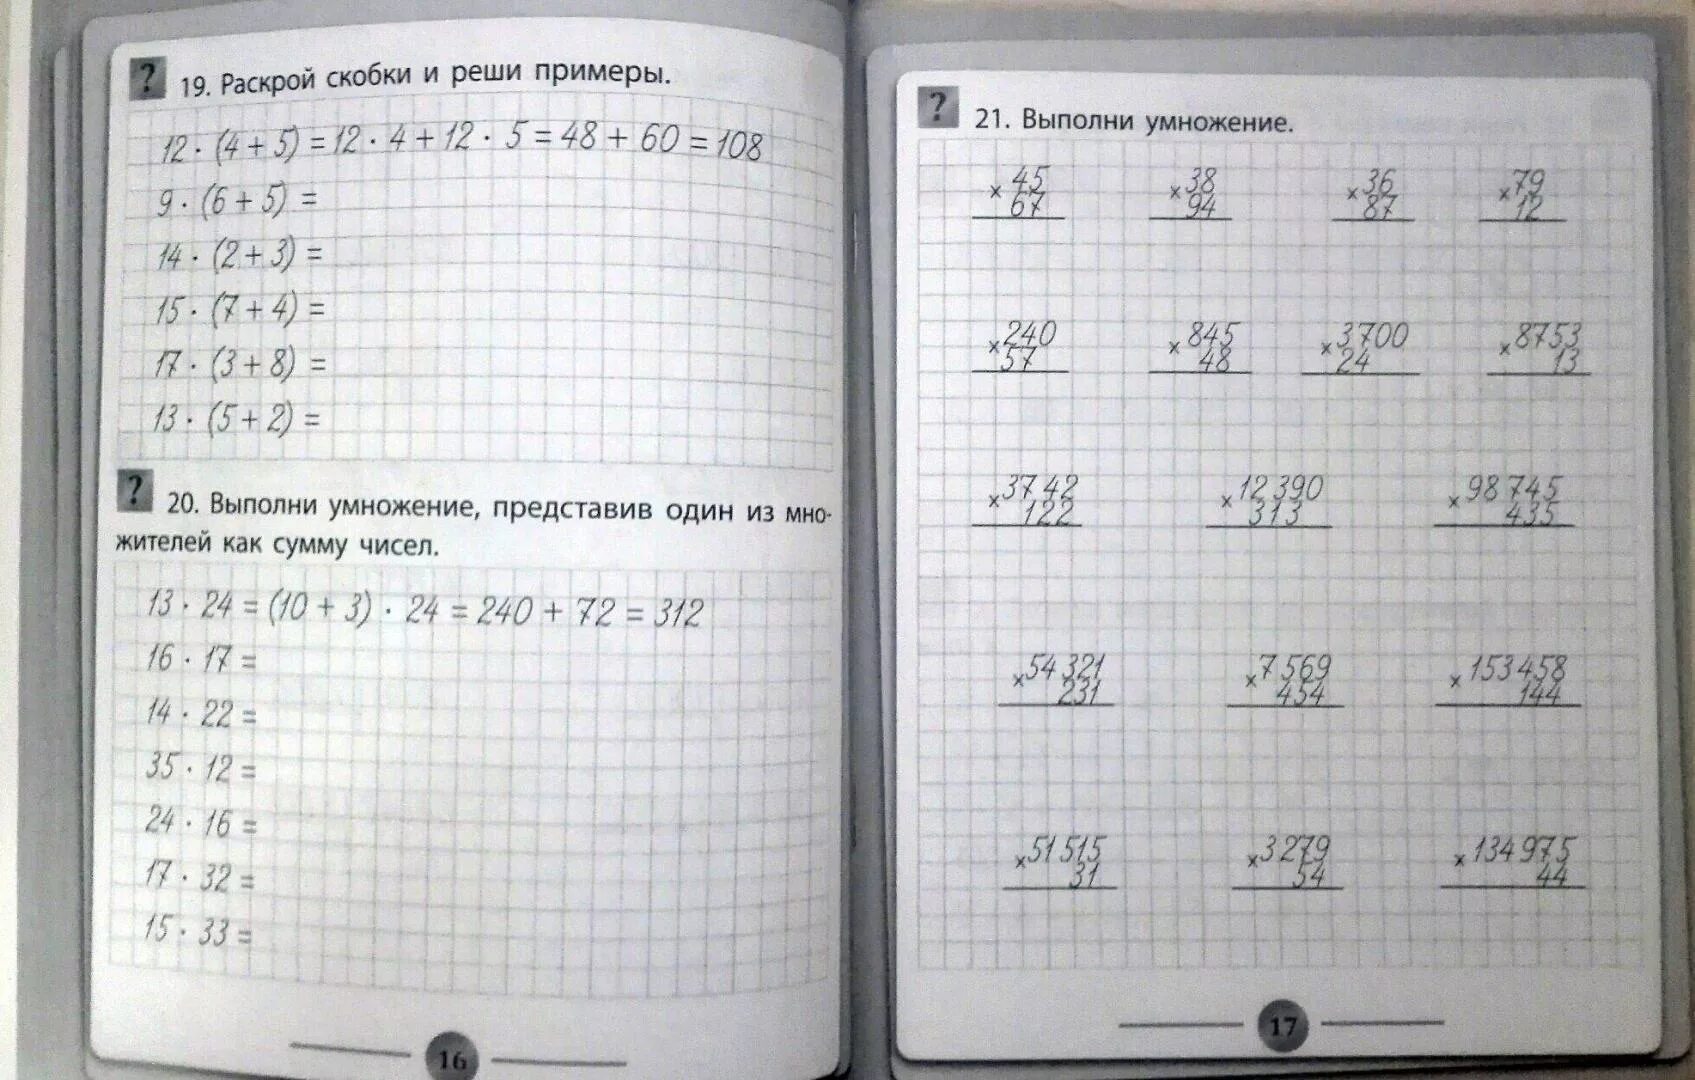 ? 19. Раскрой скобки и реши примеры.
12 · (4 + 5) = 12 · 4 + 12 · 5 = 48 + 60 = 108
9 · (6 + 5) =
14 · (2 + 3) =
15 · (7 + 4) =
17 · (3 + 8) =
13 · (5 + 2) =
? 20. Выполни умножение, представив один из мно-
жителей как сумму чисел.
13 · 24 = (10 + 3) · 24 = 240 + 72 = 312
16 · 17 =
14 · 22 =
35 · 12 =
24 · 16 =
17 · 32 =
15 · 33 =
16
? 21. Выполни умножение.
× 45 × 38 × 36 × 79
67 94 87 12
× 240 × 845 × 3700 × 8753
57 48 24 13
× 3742 × 12 390 × 98 745
122 313 435
× 54 321 × 7 569 × 153 458
231 454 144
× 51 515 × 3 279 × 134 975
31 54 44
17